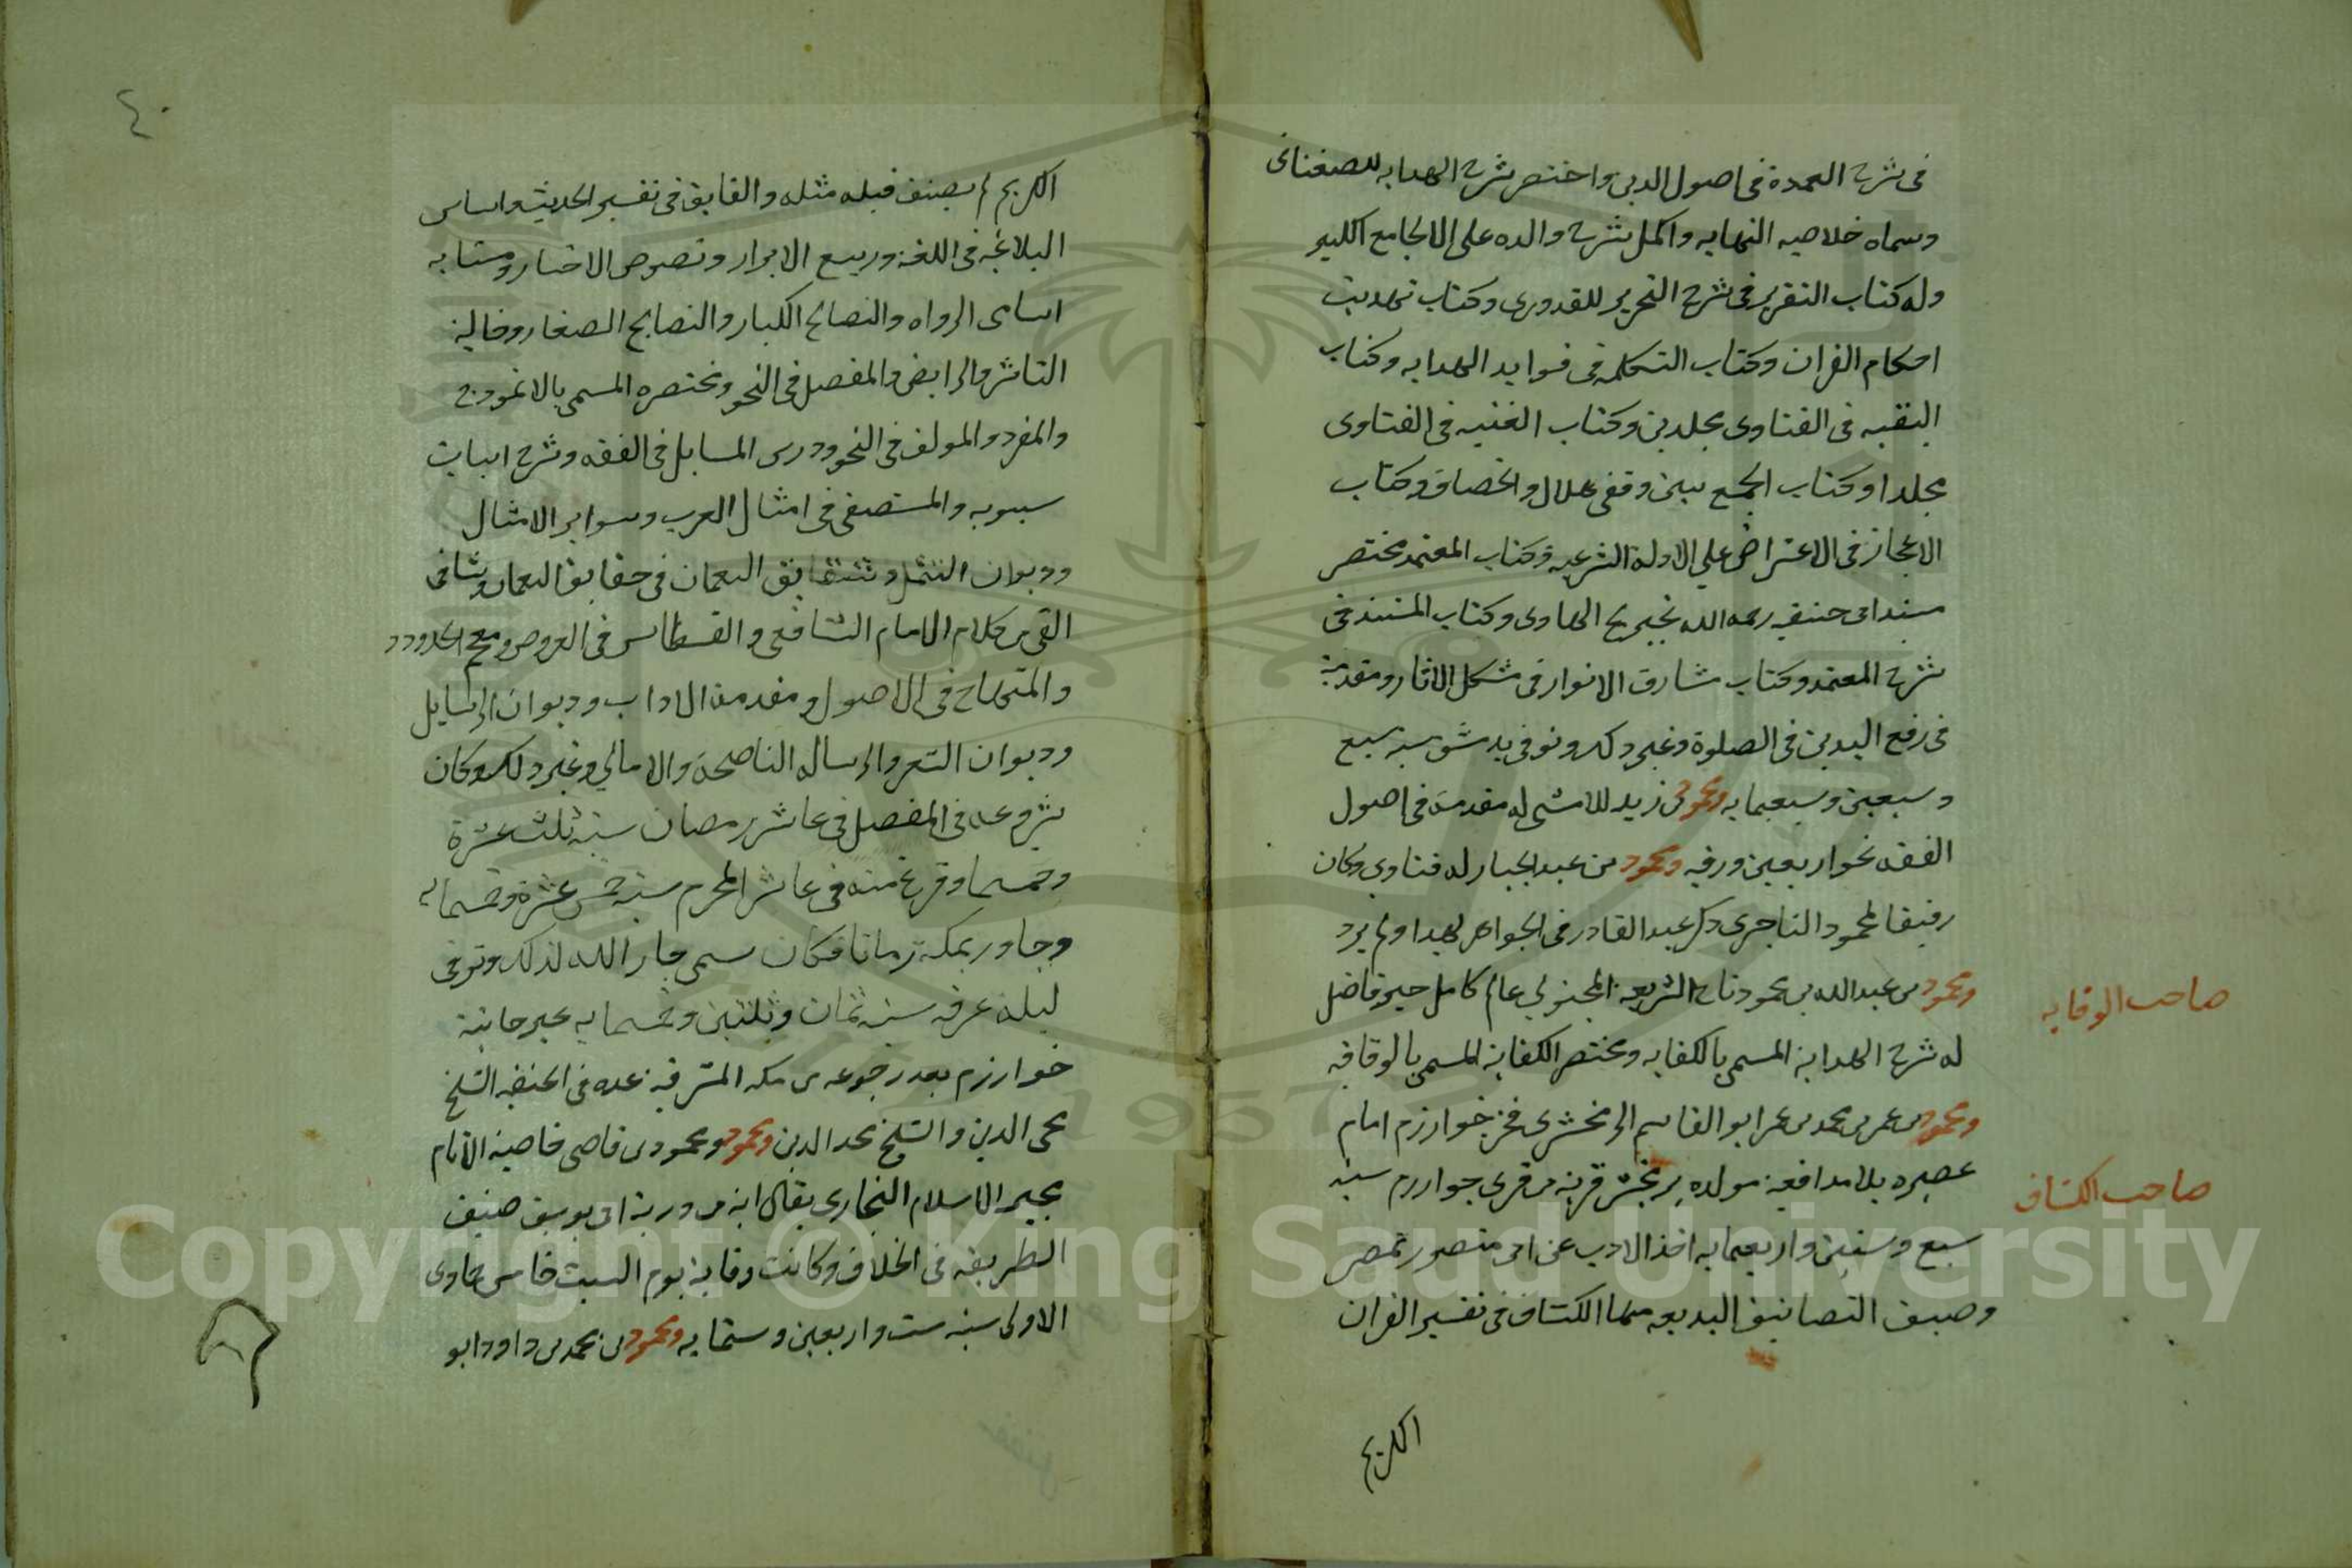 فى شرح العمدة فى اصول الدين واختصر شرح الهدايه للصغناقى
وسماه خلاصه النهايه واكمل شرح والده على الجامع الكبير
وله كتاب التقرير فى شرح التحرير للقدورى وكتاب تهديب
احكام القران وكتاب التكمله فى فوايد الهدايه وكتاب
البقيه فى الفتاوى مجلدين وكتاب الغنيه فى الفتاوى
مجلدا وكتاب الجمع بين وقفى هلال والخصاف وكتاب
الاعجاز فى الاعتراض على الادلة الشرعيه وكتاب المعتمد مختصر
مسند ابى حنيفه رحمه الله تخريج الحاوى وكتاب المستند فى
شرح المعتمد وكتاب مشارق الانوار فى مشكل الاثار ومقدمة
فى رفع اليدين فى الصلوة وغير ذلك وتوفى بدمشق سنه سبع
وسبعين وسبعمايه ومحمود بن زيد اللامشى له مقدمة فى اصول
الفقه نحو اربعين ورقه ومحمود بن عبد الجبار له فتاوى وكان
رفيقا لمحمود التاجرى ذكر عبد القادر فى الجواهر لهدا ولم يرد
ومحمود بن عبد الله بن محمود تاج الشريعه المحبوبى عالم كامل حبر فاضل
صاحب الوقايه
له شرح الهداية المسمى بالكفايه ومختصر الكفاية المسمى بالوقايه
ومحمود بن عمر بن محمد بن عمر ابو القاسم الزمخشرى فخر خوارزم امام
عصره بلا مدافعة مولده بزمخشر قرية من قرى خوارزم سنه
صاحب الكشاف
سبع وستين واربعمايه اخذ الادب عن ابى منصور بمصر
وصنف التصانيف البديعه منها الكشاف فى تفسير القران
الكريم
٤٠
الكريم لم يصنف قبله مثله والفايق فى تفسير الحديث واساس
البلاغة فى اللغة وربيع الابرار ونصوص الاخبار ومتشابه
اسامى الرواه والنصائح الكبار والنصايح الصغار وضالة
الناشد والرايض والمفصل فى النحو ومختصره المسمى بالانموذج
والمفرد والمولف فى النحو ورس المسايل فى الفقه وشرح ابيات
سيبويه والمستصفى فى امثال العرب وسواير الامثال
وديوان التمثل وشقايق النعمان فى حقايق النعمان وشافى
العى من كلام الامام الشافعى والقسطاس فى العروض ومعجم الحدود
والمنهاج فى الاصول ومقدمة الاداب وديوان الرسايل
وديوان الشعر والرساله الناصحة والامالى وغير ذلك وكان
شروعه فى المفصل فى عاشر رمضان سنة ثلث عشرة
وخمسما وفرغ منه فى عاشر المحرم سنة خمس عشرة وخمسمايه
وجاور بمكة زمانا فكان سمى جار الله لذلك وتوفى
ليلة عرفه سنه ثمان وثلثين وخمسمايه بجرجانية
خوارزم بعد رجوعه من مكه المشرفه عده فى الحنفيه الشيخ
محى الدين والشيخ مجد الدين ومحمود ومحمود بن قاضى قاضية الانام
مجير الاسلام البخارى يقال انه من ذرية ابى يوسف صنف
الطريقه فى الخلاف وكانت وفاته يوم السبت خامس جمادى
الاولى سنه ست واربعين وستمايه ومحمود بن محمد بن داود ابو
Copyright © King Saud University
1957